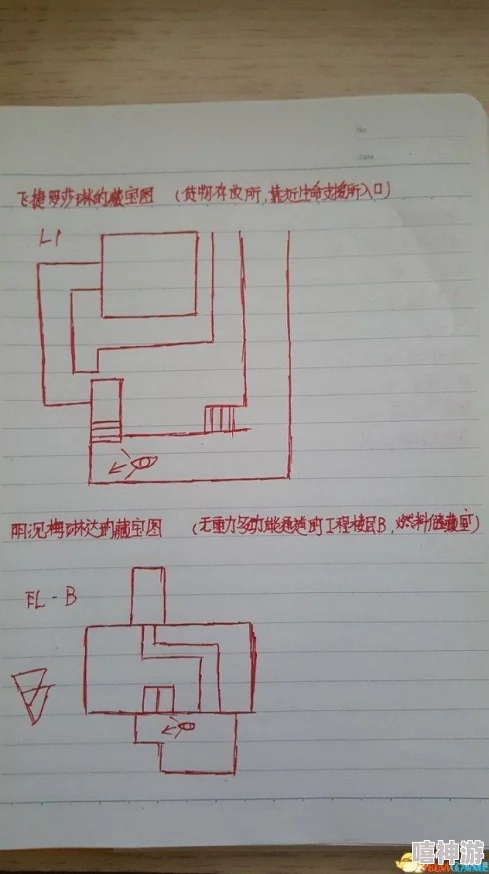 No.
Date
飞捷罗莎琳的藏宝图 (货物存放所,靠近生命支援所入口)
L1
阴沉梅琳达的藏宝图 (无重力多功能通道的工程楼层B,燃料储藏室)
EL-B
嘻神游